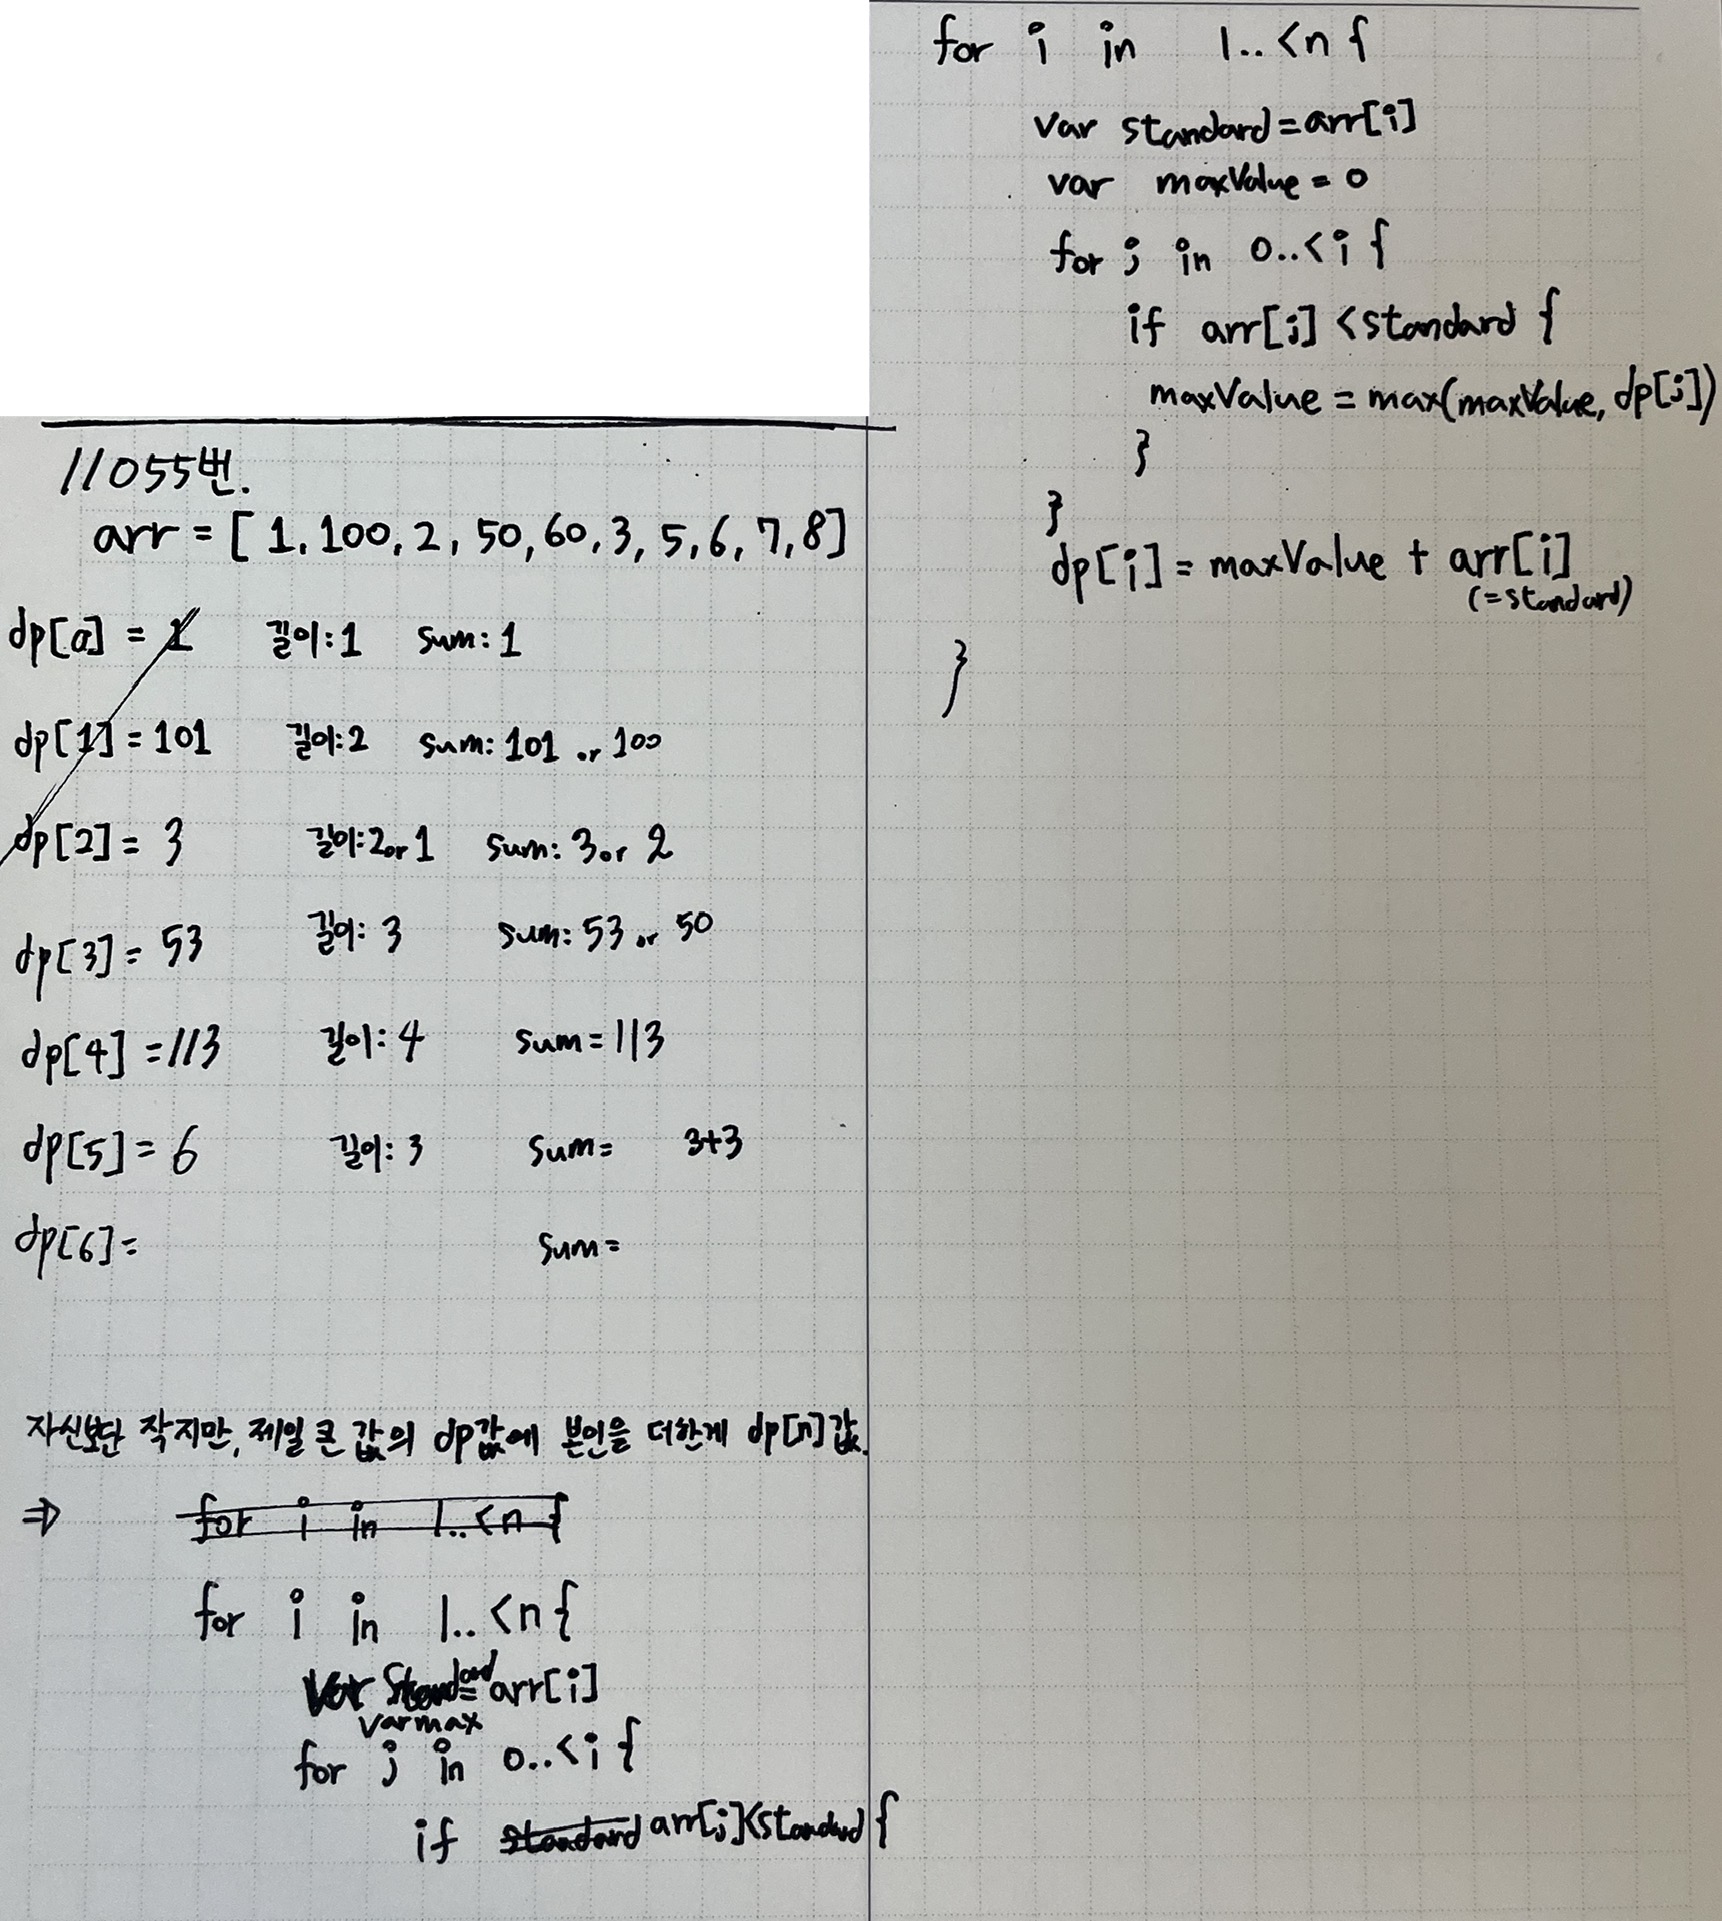 11055번.
arr = [ 1, 100, 2, 50, 60, 3, 5, 6, 7, 8]
dp[0] = 1 길이:1 sum: 1
dp[1] = 101 길이:2 sum: 101 or 100
dp[2] = 3 길이:2or 1 sum: 3or 2
dp[3] = 53 길이: 3 sum: 53 or 50
dp[4] = 113 길이: 4 sum = 113
dp[5] = 6 길이: 3 sum= 3+3
dp[6] = sum =
자신보단 작지만, 제일 큰 값의 dp값에 본인을 더한게 dp[n]값.
⇒ for i in 1..<n {
for i in 1..<n {
var standard= arr[i]
var max
for j in 0..<i {
if standard arr[j]<standard {
for i in 1..<n {
var standard=arr[i]
var maxValue = 0
for j in 0..<i {
if arr[j] <standard {
maxValue = max(maxValue, dp[j])
}
}
dp[i] = maxValue + arr[i]
(=standard)
}